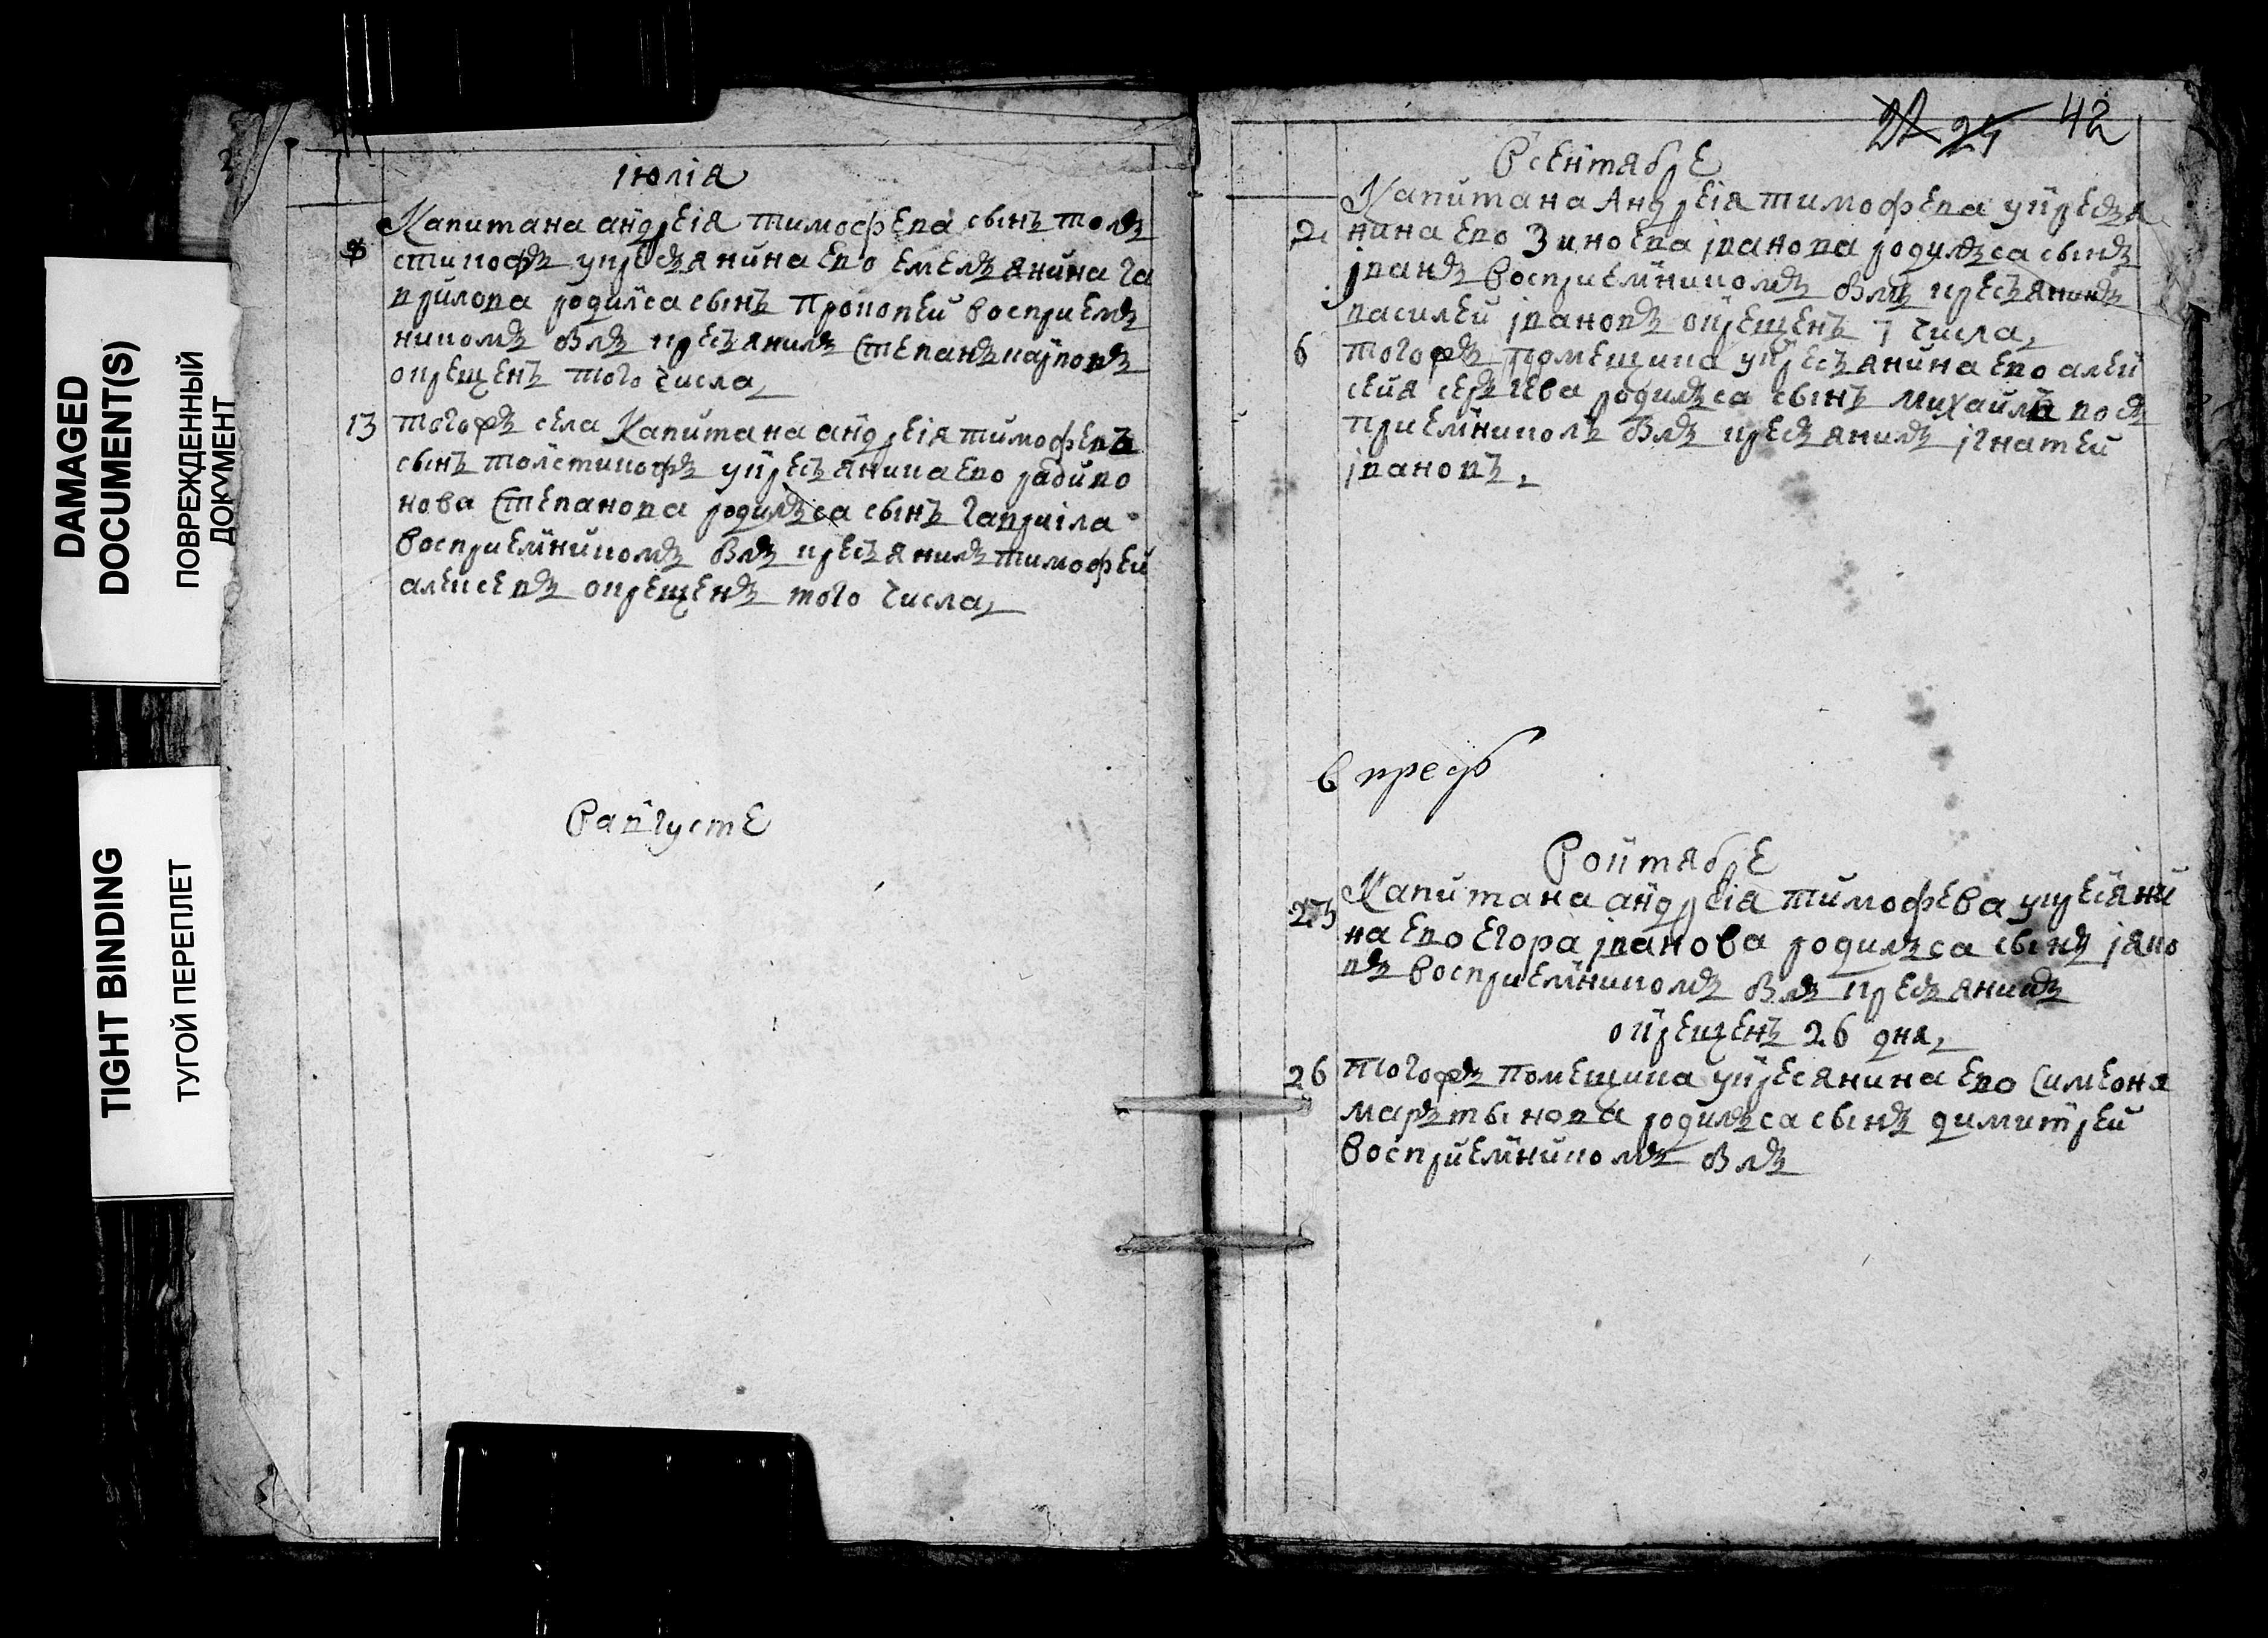 DAMAGED
DOCUMENT(S)
ПОВРЕЖДЕННЫЙ
ДОКУМЕНТ
TIGHT BINDING
ТУГОЙ ПЕРЕПЛЕТ
іюліа
Капитана андреіа тимофева сынъ толъ
8
стиковъ укресьянина ево емельянина га
врилова родился сынъ прокопей восприемъ
никомъ былъ кресьянинъ степанъ карповъ
окрещенъ того числа
13 тогожъ села Капитана андреіа тимофевъ
сынъ толстиковъ укресьянина ево радиво
нова степанова родилъса сынъ гавриила
восприемникомъ былъ кресьянинъ тимофей
алексевъ окрещенъ того числа
Вавгусте
42
Всентябре
Капитана Андреіа тимофева укресья
2 нина ево Зиновва іванова родилъса сынъ
іванъ восприемникомъ былъ кресьянинъ
василей івановъ окрещенъ 7 числа
6 тогожъ помещика укресьянина ево алек
сея серъгева родилъса сынъ михайла вось
приемникомъ былъ кресьянинъ ігнатей
івановъ
Воктябре
25 Капитана андреіа тимофева укресяни
на ево Егора іванова родилъса сынъ іяко
въ восприемникомъ былъ кресьянинъ
окрещенъ 26 дня
26 тогожъ помещика укресянина ево симеона
марътынова родилъса сынъ димитрей
восприемникомъ былъ